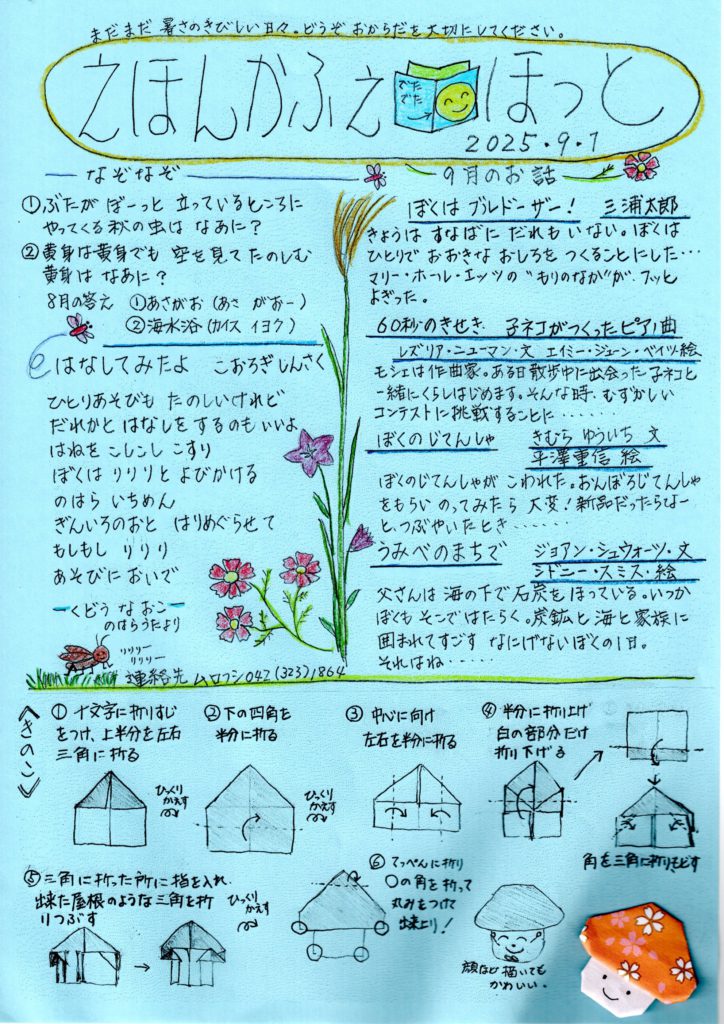 まだまだ 暑さのきびしい日々。どうぞ おからだを大切にしてください。
えほんかふぇ
でた
でた
ほっと
2025・9・1
なぞなぞ
①ぶたが ぼーっと 立っているところに
やってくる秋の虫は なあに？
②黄身は黄身でも 空を見て たのしむ
黄身は なあに？
8月の答え ①あさがお(あさ がおー)
②海水浴(カイス イヨク)
はなしてみたよ こおろぎしんさく
ひとりあそびも たのしいけれど
だれかと はなしを するのも いいよ
はねを こしこし こすり
ぼくは りりりと よびかける
のはら いちめん
ぎんいろのおと はりめぐらせて
もしもし りりり
あそびに おいで
くどう なおこ
のはらうたより
リリリー
リリリー
連絡先 ムロフシ 042(323)1864
9月のお話
ぼくは ブルドーザー! 三浦太郎
きょうは すなばに だれも いない。ぼくは
ひとりで おおきな おしろを つくることにした…
マリー・ホール・エッツの"もりのなか"が、フッと
よぎった。
60秒のきせき 子ネコがつくったピアノ曲
レズリア・ニューマン・文 エイミー・ジューン・ベイツ絵
モシェは作曲家。ある日散歩中に出会った子ネコと
一緒にくらしはじめます。そんな時、むずかしい
コンテストに挑戦することに……
ぼくのじてんしゃ きむら ゆういち 文
平澤重信 絵
ぼくのじてんしゃが こわれた。おんぼろじてんしゃ
をもらい のってみたら 大変！新品だったらなー
と、つぶやいたとき……
うみべのまちで ジョアン・シュウォーツ・文
シドニー・スミス・絵
父さんは 海の下で石炭を ほっている。いつか
ぼくも そこではたらく。炭鉱と海と家族に
囲まれてすごす なにげないぼくの1日。
それはね……
《きのこ》
①十文字に折りすじ
をつけ、上半分を左右
三角に折る
ひっくり
かえす
②下の四角を
半分に折る
ひっくり
かえす
③中心に向け
左右を半分に折る
④半分に折り上げ
白の部分だけ
折り下げる
角を三角に折りもどす
⑤三角に折った所に指を入れ、
出来た屋根のような三角を折
りつぶす
ひっくり
かえす
⑥てっぺんに折り
○の角を折って
丸みをつけて
出来上り！
顔など描いても
かわいい。